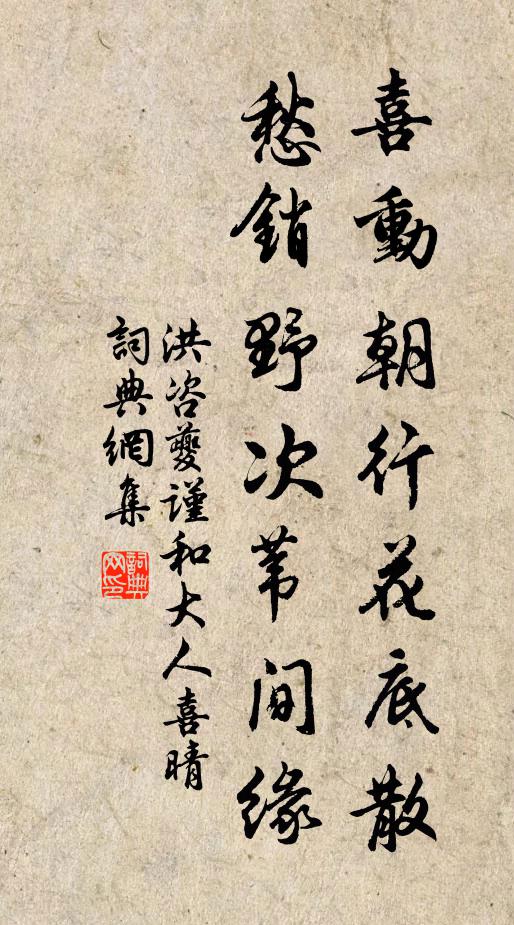 喜動朝行花底散
愁銷野次葦間緣
洪咨夔謹和大人喜晴
詞典網集
詞典网印